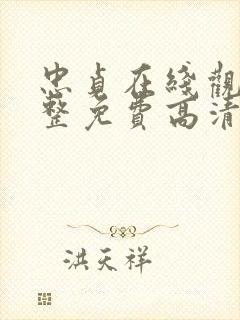 忠貞在綫觀
整免費高清
洪天祥